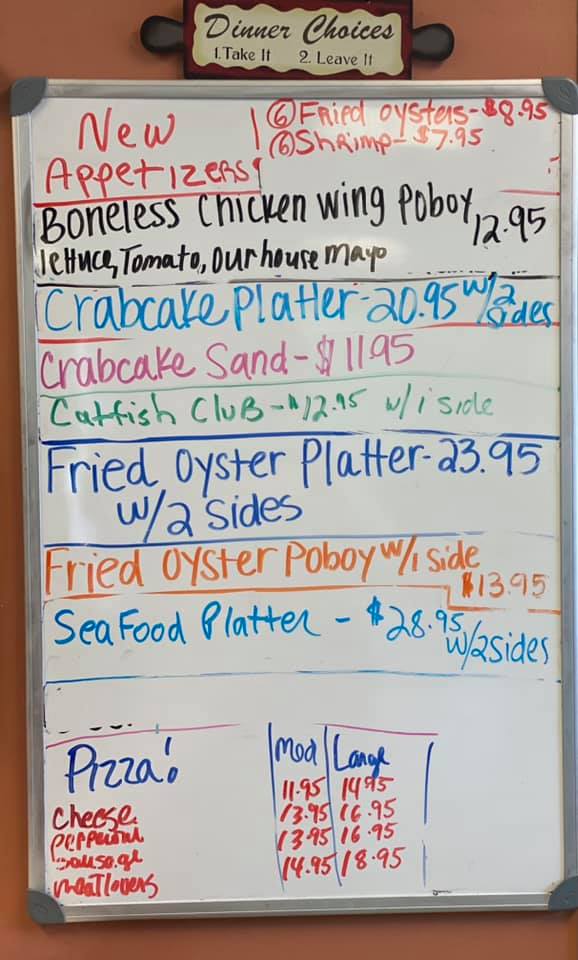 Dinner Choices
1. Take It 2. Leave It
New Appetizers!
⑥ Fried oysters-$8.95
⑥ Shrimp-$7.95
Boneless Chicken wing Poboy 12.95
lettuce, Tomato, our house mayo
Crabcake Platter-20.95 w/2 sides
Crabcake Sand-$11.95
Catfish Club-$12.95 w/1 side
Fried Oyster Platter-23.95
w/2 sides
Fried Oyster Poboy w/1 side
$13.95
Sea Food Platter - $28.95
w/2 sides
Pizza! Med Large
cheese 11.95 14.95
pepperoni 13.95 16.95
sausage 13.95 16.95
meatlovers 14.95 18.95